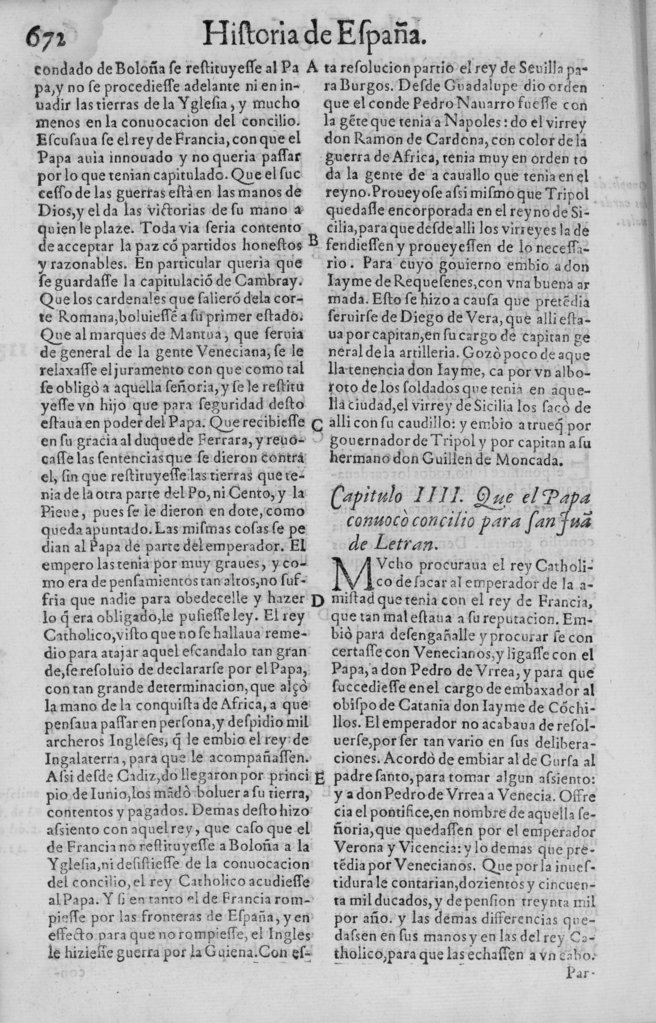 672
Historia de España.
condado de Boloña se restituyesse al Pa
pa,y no se procediesse adelante ni en in-
uadir las tierras de la Yglesia, y mucho
menos en la conuocacion del concilio.
Escusaua se el rey de Francia, con que el
Papa auia innouado y no queria passar
por lo que tenian capitulado. Que el suc
cesso de las guerras està en las manos de
Dios,y el da las victorias de su mano a
quien le plaze. Toda via seria contento
de acceptar la paz cõ partidos honestos
y razonables. En particular queria que
se guardasse la capitulaciõ de Cambray.
Que los cardenales que salierõ dela cor-
te Romana,boluiessẽ a su primer estado.
Que al marques de Mantua, que seruia
de general de la gente Veneciana, se le
relaxasse el juramento con que como tal
se obligò a aquella señoria, y se le restitu
yesse vn hijo que para seguridad desto
estaua en poder del Papa. Que recibiesse
en su gracia al duque de Ferrara, y reuo-
casse las sentencias que se dieron contra
el, sin que restituyesse las tierras que te-
nia de la otra parte del Po, ni Cento, y la
Pieue, pues se le dieron en dote, como
queda apuntado. Las mismas cosas se pe
dian al Papa de parte del emperador. El
empero las tenia por muy graues, y co-
mo era de pensamientos tan altos,no suf-
fria que nadie para obedecelle y hazer
lo q̃ era obligado,le pusiesse ley. El rey
Catholico,visto que no se hallaua reme-
dio para atajar aquel escandalo tan gran
de,se resoluio de declararse por el Papa,
con tan grande determinacion,que alçò
la mano de la conquista de Africa, a que
pensaua passar en persona,y despidio mil
archeros Ingleses, q̃ le embio el rey de
Ingalaterra, para que le acompañassen.
Assi desde Cadiz,do llegaron por princi
pio de Iunio,los mãdò boluer a su tierra,
contentos y pagados. Demas desto hizo
assiento con aquel rey, que caso que el
de Francia no restituyesse a Boloña a la
Yglesia,ni desistiesse de la conuocacion
del concilio,el rey Catholico acudiesse
al Papa. Y si en tanto el de Francia rom-
piesse por las fronteras de España, y en
effecto para que no rompiesse, el Ingles
le hiziesse guerra por la Guiena.Con es-
A
B
C
D
E
ta resolucion partio el rey de Seuilla pa-
ra Burgos. Desde Guadalupe dio orden
que el conde Pedro Nauarro fuesse con
la gẽte que tenia a Napoles: do el virrey
don Ramon de Cardona, con color de la
guerra de Africa, tenia muy en orden to
da la gente de a cauallo que tenia en el
reyno. Proueyose assi mismo que Tripol
quedasse encorporada en el reyno de Si-
cilia,para que desde alli los virreyes la de
fendiessen y proueyessen de lo necessa-
rio. Para cuyo gouierno embio a don
Iayme de Requesenes,con vna buena ar
mada. Esto se hizo a causa que pretẽdia
seruirse de Diego de Vera, que alli esta-
ua por capitan,en su cargo de capitan ge
neral de la artilleria. Gozò poco de aque
lla tenencia don Iayme, ca por vn albo-
roto de los soldados que tenia en aque-
lla ciudad,el virrey de Sicilia los sacò de
alli con su caudillo: y embio a trueq̃ por
gouernador de Tripol y por capitan a su
hermano don Guillen de Moncada.
Capitulo IIII. Que el Papa
conuocò concilio para san Juã
de Letran.
MVcho procuraua el rey Catholi-
co de sacar al emperador de la a-
mistad que tenia con el rey de Francia,
que tan mal estaua a su reputacion. Em-
biò para desengañalle y procurar se con
certasse con Venecianos,y ligasse con el
Papa,a don Pedro de Vrrea, y para que
succediesse en el cargo de embaxador al
obispo de Catania don Iayme de Cõchi-
llos. El emperador no acabaua de resol-
uerse,por ser tan vario en sus delibera-
ciones. Acordò de embiar al de Gursa al
padre santo, para tomar algun assiento:
y a don Pedro de Vrrea a Venecia. Offre
cia el pontifice,en nombre de aquella se-
ñoria,que quedassen por el emperador
Verona y Vicencia: y lo demas que pre-
tẽdia por Venecianos. Que por la inues-
tidura le contarian,dozientos y cincuen-
ta mil ducados, y de pension treynta mil
por año. y las demas differencias que-
dassen en sus manos y en las del rey Ca-
tholico,para que las echassen a vn cabo.
Par-